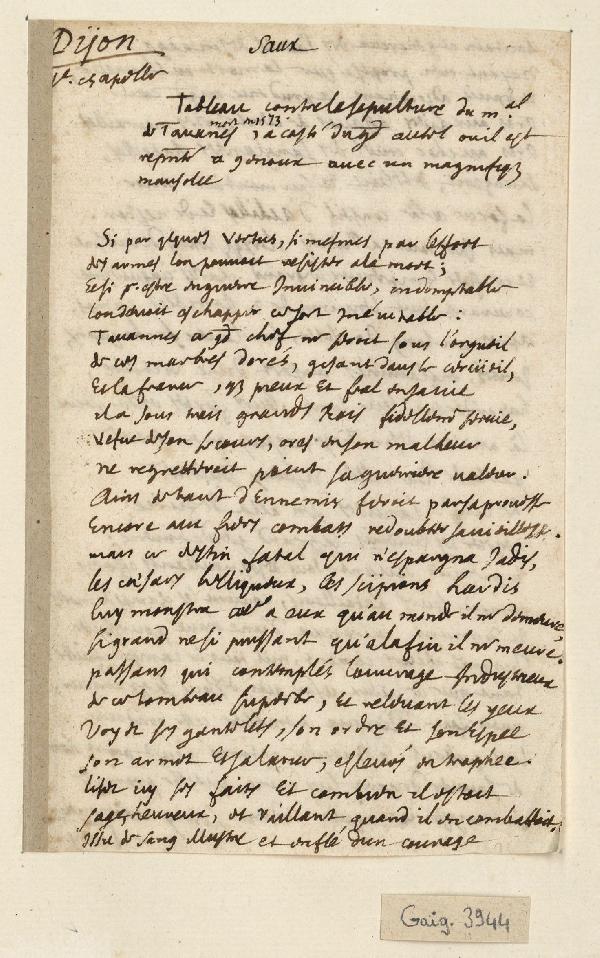 Dijon
Saux
Ste. chapelle
Tableau contre la sepulture du m.al
mort en 1573
de Tavanes, a costé du gd autel ou il est
repnté a genoux avec un magnifiq
mausolee
Si par qlques vertus, si mesmes par l'effort
des armes l'on pouvoit resister a la mort;
Et si pr estre en guerre Invincible, indomptable
l'on devoit eschapper ce sort Inévitable:
Tavannes ce gd chef ne seroit sous l'orgueil
de ces marbres dorés, gisant dans le cercüeil,
Et la france, qu preux Et feal en sa vie
il a sous trois grands Rois fidellemt servie,
Vefue de son secours, ores en son malheur
ne regretteroit point sa guerriere valeur.
Ains de tant d'Ennemis seroit par sa prouesse
Encore aux fiers combats redoubtée sa vieillesse.
mais ce destin fatal qui n'espargna Jadis,
les cesars belliqueux, les scipions hardis
luy monstra comme a eux qu'au monde il ne demeure,
si grand ne si puissant qu'a la fin il ne meure.
passans qui contemplés l'ouvrage Industrieux
de ce tombeau superbe, Et relevant les yeux
Voyez ses gantelets, son ordre Et son Espee
son armet Et sa lance, eslevés en trophee.
lisez icy ses faits Et combien il estoit
sage, heureux, et vaillant quand il combattoit.
Issu de sang Illustre et enflé d'un courage
Gaig. 3944